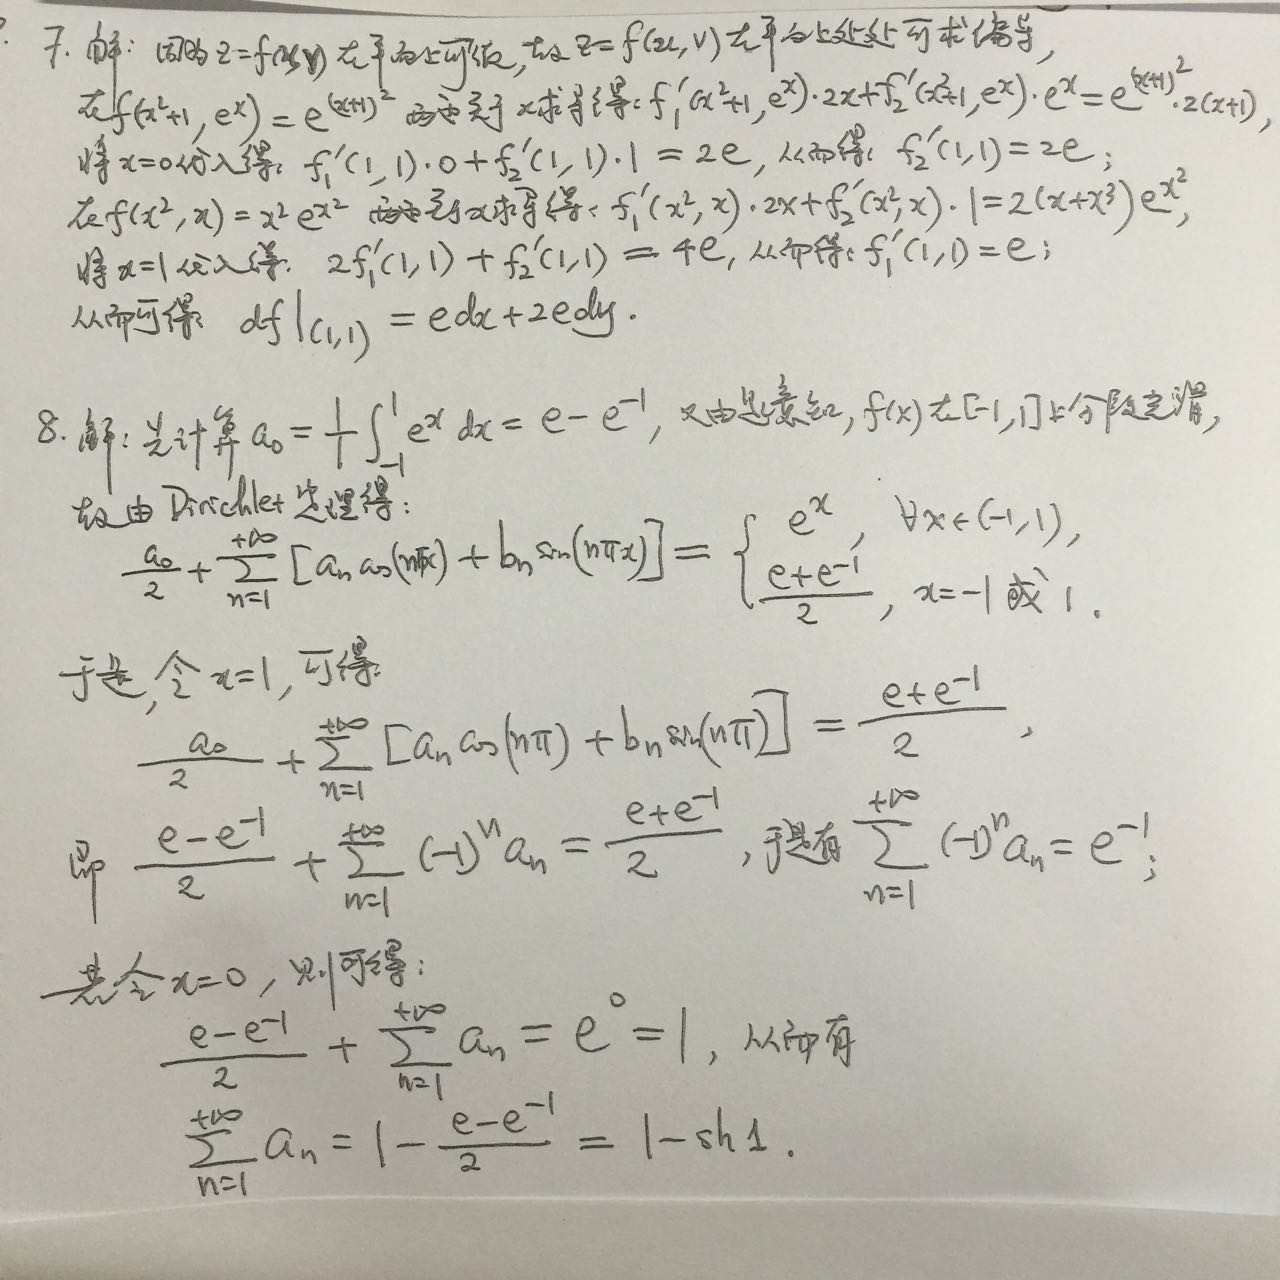 7. 解: 因为 z=f(u,v) 在平面上可微, 故 z=f(u,v) 在平面上处处可求偏导,
在 f(x²+1, eˣ) = e^{(x+1)²} 两边关于 x 求导得: f₁'(x²+1, eˣ)·2x + f₂'(x²+1, eˣ)·eˣ = e^{(x+1)²}·2(x+1),
将 x=0 代入得: f₁'(1,1)·0 + f₂'(1,1)·1 = 2e, 从而得: f₂'(1,1) = 2e;
在 f(x², x) = x² e^{x²} 两边关于 x 求导得: f₁'(x², x)·2x + f₂'(x², x)·1 = 2(x+x³)e^{x²},
将 x=1 代入得: 2f₁'(1,1) + f₂'(1,1) = 4e, 从而得: f₁'(1,1) = e;
从而可得: df|_{(1,1)} = edx+2edy.
8. 解: 先计算 a₀ = \frac{1}{1} ∫_{-1}^{1} eˣ dx = e - e^{-1}, 又由题意知, f(x) 在 [-1,1] 上分段光滑,
故由 Dirichlet 定理得:
\frac{a₀}{2} + \sum_{n=1}^{+∞} [aₙ cos(nπx) + bₙ sin(nπx)] = { eˣ, ∀x∈(-1,1),
\frac{e+e^{-1}}{2}, x=-1 或 1.
于是, 令 x=1, 可得:
\frac{a₀}{2} + \sum_{n=1}^{+∞} [aₙ cos(nπ) + bₙ sin(nπ)] = \frac{e+e^{-1}}{2},
即 \frac{e-e^{-1}}{2} + \sum_{n=1}^{+∞} (-1)ⁿ aₙ = \frac{e+e^{-1}}{2}, 于是有 \sum_{n=1}^{+∞} (-1)ⁿ aₙ = e^{-1};
若令 x=0, 则可得:
\frac{e-e^{-1}}{2} + \sum_{n=1}^{+∞} aₙ = e⁰ = 1, 从而有
\sum_{n=1}^{+∞} aₙ = 1 - \frac{e-e^{-1}}{2} = 1 - sh1.